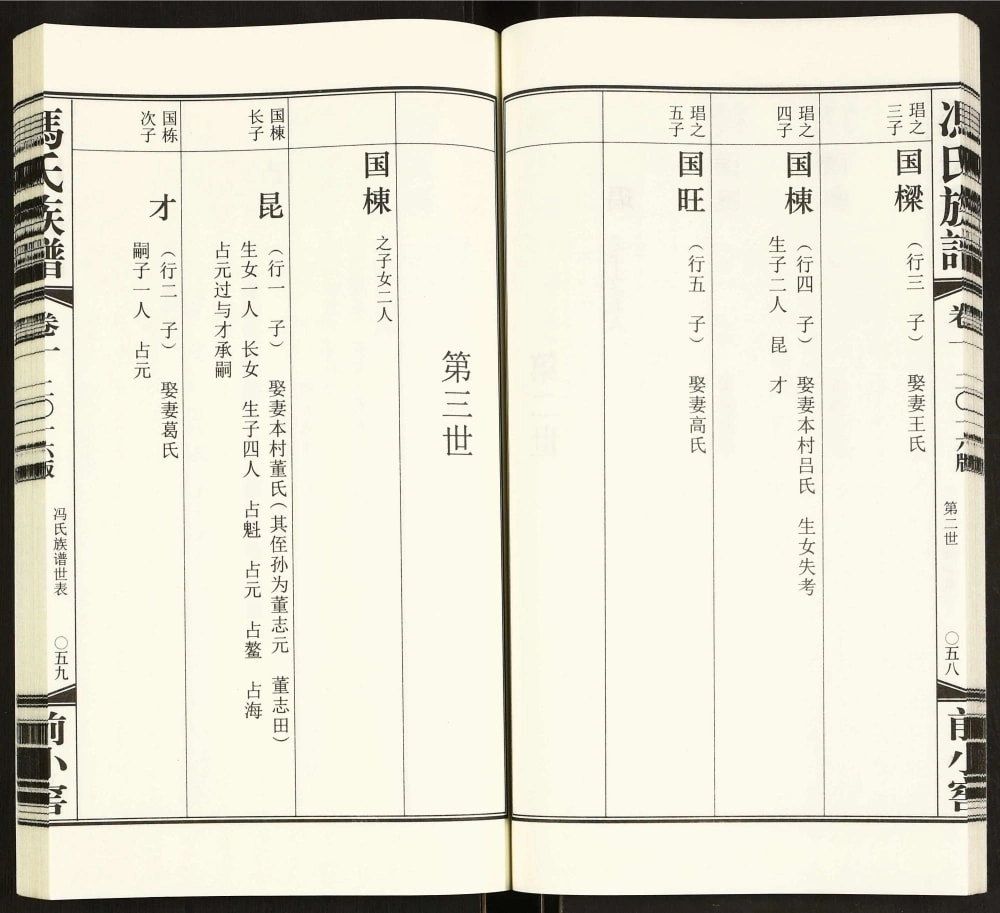 馮氏族譜
卷一
二〇一六版
第二世
〇五八
前小窖
琩之
三子
国樑
（行三　子）　娶妻王氏
琩之
四子
国棟
（行四　子）　娶妻本村吕氏　生女失考
生子二人　昆　才
琩之
五子
国旺
（行五　子）　娶妻高氏
第三世
国棟
之子女二人
国棟
长子
昆
（行一　子）　娶妻本村董氏（其侄孙为董志元　董志田）
生女一人　长女　生子四人　占魁　占元　占鳌　占海
占元过与才承嗣
国栋
次子
才
（行二　子）　娶妻葛氏
嗣子一人　占元
馮氏族譜
卷一
二〇一六版
冯氏族谱世表
〇五九
前小窖